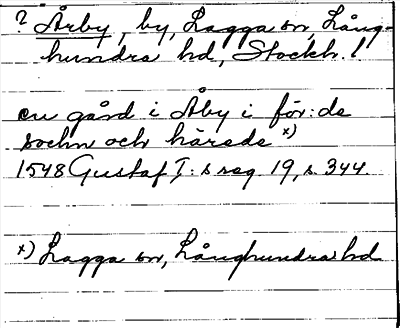 ? Årby, by, Lagga sn, Lång-
hundra hd, Stockh. l
en gård i Åby i för:de
sochn och härede x)
1548 Gustaf I:s reg. 19, s. 344.
x) Lagga sn, Långhundra hd